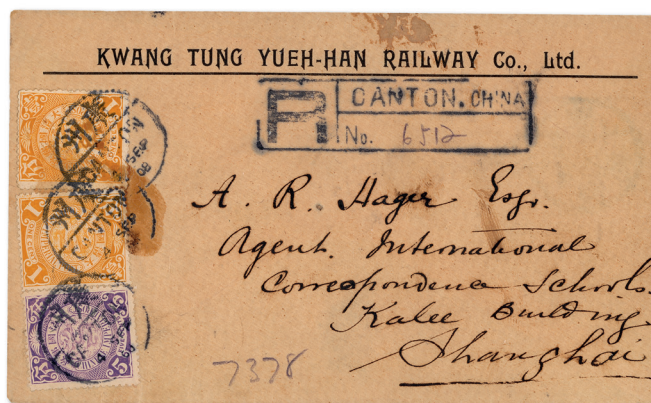 KWANG TUNG YUEH-HAN RAILWAY Co., Ltd.
R
CANTON. CHINA
No. 6512
A. R. Hager Esqr.
Agent. International
Correspondence Schools.
Kalee Building
Shanghai
7378
1
1
CANTON
SEP
廣州
CANTON
4 SEP
5
4 SEP